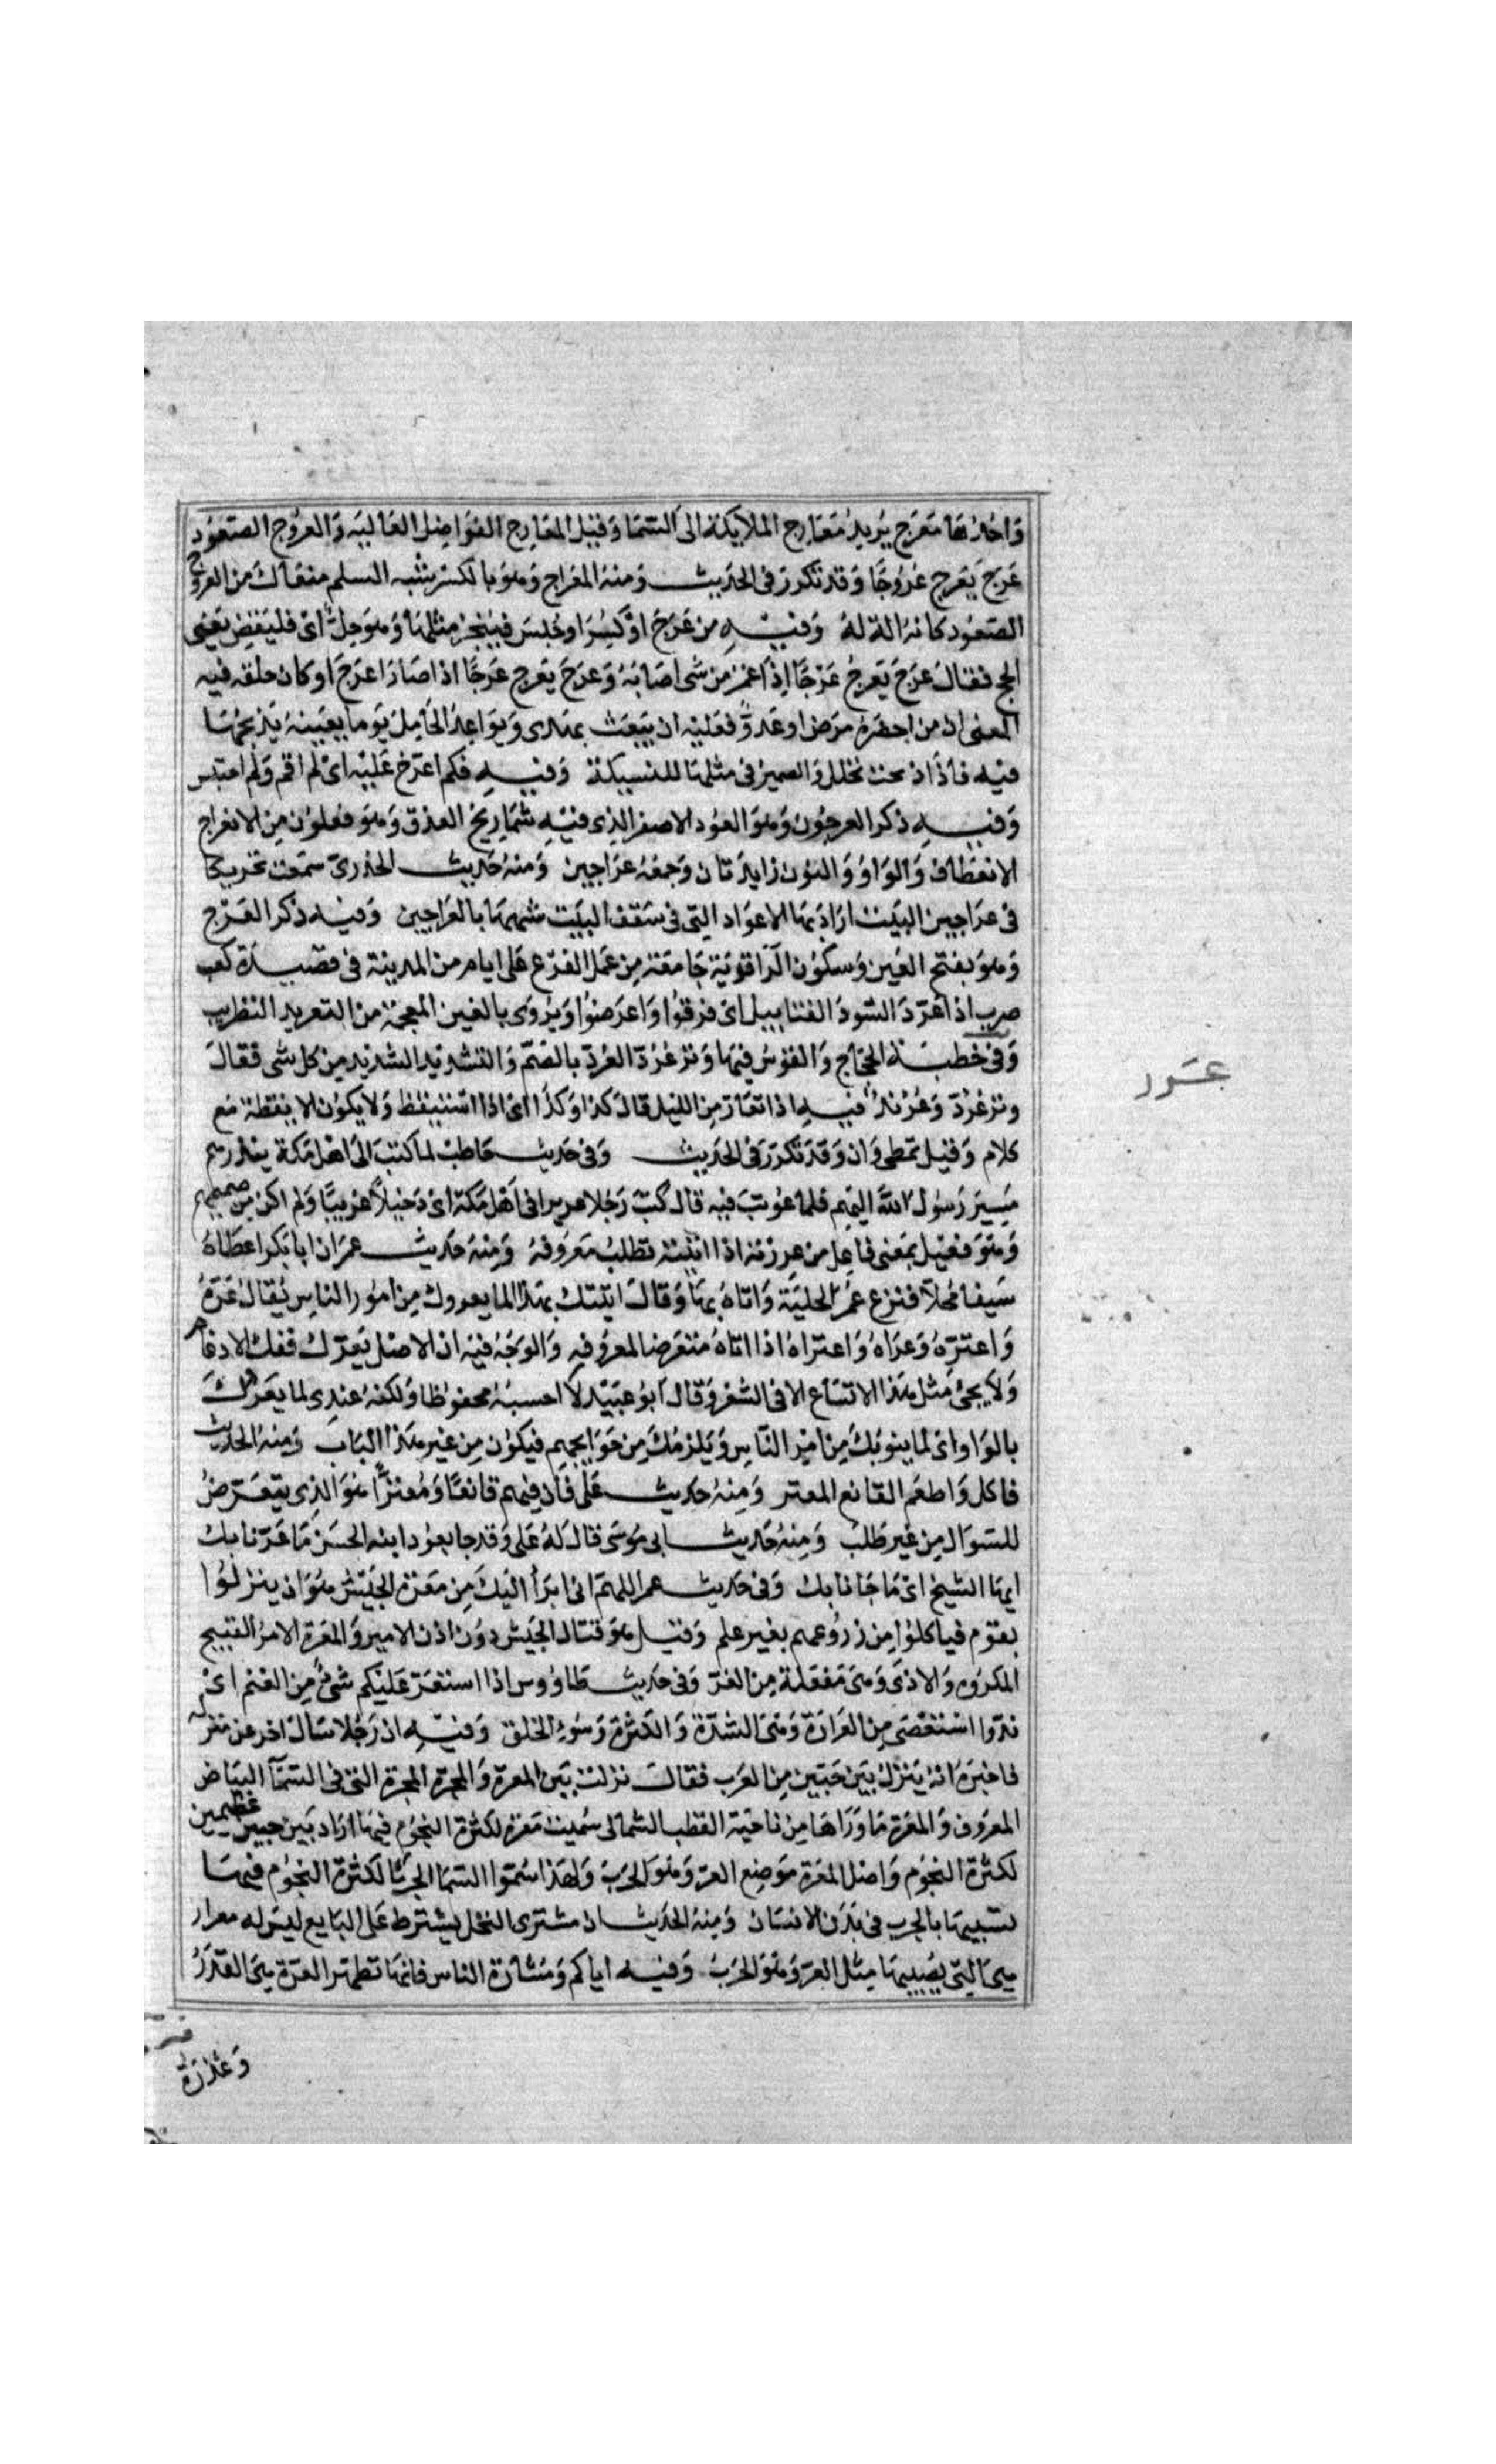 وَاحِدُهَا مَعْرَج يُريدُ مَعَارِج الملايكة الى السّمَا وَقيْل المعَارِج الفوَاضِل العَاليَه وَالعرُوْج الصعُوْد
عَرَجَ يَعرج عُرُوجًا وَقد تكررَ في الحديث وَمنهُ المعرَاج وَهوَ بالكسْر شبه السلم مفعَال مَن العرُوج
الصعُود كانهُ الة لهُ وَفيْهِ من عَرَجَ او كُسِرَ او حُبسَ فليَجْز مثلهَا وَهوَ حِلٌّ اىْ فليَقضِ يَعْني
الحج فقال عَرَجَ يَعرجُ عَرَجًا اِذَا غمز من شي اصَابَهُ وَعَرِجَ يَعرج عَرَجًا اذا صَارَ اعرَج او كان خلقه فيه
المعنى ان من احصرَهُ مرَض او عَدوّ فعَليْه ان يبْعَث بهدى وَيوَاعدَ الحَامِل يَوما بعَينهِ يَذبحهَا
فيه فاذَا ذبحت تحلل وَالضمير في مثلهَا للنسيكة وَفيْهِ فلم اعرّج عَليْه اىْ لم اقم وَلم احتبس
وَفيْهِ ذكر العرجُون وَهوَ العُود الاصفر الذي فيْهِ شمَاريخ العذق وَهوَ فعْلوْن مِن الانعرَاج
الانعطاف وَالوَاوُ وَالنوُن زايدَتان وَجمعُهُ عَرَاجين وَمنهُ حَديث الخدرىّ سمَعت تحريكا
في عرَاجين البيْت ارَادَ بهَا الاعوَاد التي في سَقف البيْت شبهها بالعَرَاجين وَفيه ذكر العَرْج
وَهوَ بفتح العَين وَسكوُن الرّا قرْيَة جَامعَة مِن عَمل الفرْع عَلى ايام من المدينة في قصيْدة كعب
ضرب اذا عَرّدَ السُّودُ التنابيل اىْ فرّوا وَاعرَضوُا وَيُروَى بالغين المعجمَة من التغريد التطريب
وَفي خطبَة الحجّاج وَالقوْسُ فيهَا وَترٌ عُرُدّ العُرُدّ بالضمّ وَالتشديد الشديد من كل شي فقال
وتر عُرُدّ وَعُرُنْد فيْهِ اذا تعَارّ مِن الليْل قال كذا وَكذا اىْ اذا استيقظ وَلا يكوُن الا يقظة مَع
كلام وَقيل تمطى وَانّ وَقد تكرّرَ في الحَديث وَفي حَديث حَاطب لما كتبَ الى اهل مَكة ينذرهم
مَسيرَ رَسُول الله اليهم فلما عوُتبَ فيه قال كنتُ رَجُلا عريرا في اَهل مَكة اىْ دَخيلاً غريبًا وَلم اكن من صميمهم
وَهوَ فعيْل بمَعنى فاعِل من عررْته اذا اتيْته تطلبُ مَعرُوفهُ وَمنْهُ حَديث عمرَ ان ابا بَكر اعطاهُ
سَيفا مُحلاّ فنزع عُمَرُ الحليَةَ وَاتاهُ بهَا وَقالَ اتيتك بهذا لما يعروك مِن امُور الناس يُقالُ عَرّهُ
وَاعترّهُ وَعرَاهُ وَاعترَاهُ اذا اتاهُ متعَرضا لمعرُوفه وَالوَجْهُ فيْه ان الاصْل يَعرّك ففك الادغام
وَلاَ يجىُ مثل هَذا الاتسَاع الا في الشعر وَقال ابوُ عبَيْد لا احسبُهُ محفوُظا وَلكنهُ عندي لما يَعرُوكَ
بالوَاو اىْ لما ينوبُكَ مِن امْر النّاس وَيَلزمُكَ مِن حَوَايجهم فيكوُن مِن غير هَذا البَاب وَمنهُ الحديث
فاكل وَاطعَمَ القانع المعتر وَمِنهُ حَديث عَلي فان فيهم قانعًا وَمُعترًّا هوَ الذي يتعَرّضُ
للسوَال مِن غير طلب وَمِنهُ حَديث ابي مُوسَى قال لهُ عَلي وَقد جا يعوُد ابنه الحسَن مَا عَرّنا بك
ايها الشيخ اىْ مَا جَا نا بك وَفي حَديث عمر اللهمّ اني ابرَأ اليْكَ مِن مَعرّة الجَيْش هوَ ان ينزلوُا
بقوْم فياكلوُا مِن زرُوعهم بغير علم وَقيْل هوَ قتال الجَيش دوُن اذن الامير وَالمعرّة الامرُ القبيح
المكرُوه وَالاذى وَهي مَفعَلة مِن العَرّ وَفي حَديث طاوُوس اذا استعَرّ عَليكم شيُ مِن الغنم اىْ
ندّوا استعصَى مِن العَرَارَة وَهيَ الشدّة وَالكثرَة وَسُوءِ الخلق وَفيْهِ ان رَجُلا سَالَ اخر عن منزله
فاخبَرَهُ انهُ يَنزلُ بيْن حَيّيْن مِن العَرب فقالَ نزلتَ بَيْن المعَرة وَالمجرّة المجرة التي في السّمَآ البيَاض
المعرُوف وَالمعَرّة مَا وَرَاهَا مِن ناحَيَة القطب الشمالي سُميت مَعَرّة لكثرة النجُوم فيهَا ارَاد بَين حيين عظيمين
لكثرة النجُوم وَاصْل المعَرة مَوْضِع العرّ وَهوَ الجَرَبُ وَلهذا سَمّوا السّمَا الجَرْبا لكثرة النجُوم فيهَا
تشبيهَا بالجرب في بَدَن الانسَان وَمِنهُ الحَديث ان مشترى النخل يشترط عَلى البَايع ليسَ له معرار
هيَ التي يصُيبهَا مِثل العرّ وَهوَ الجرَبُ وَفيْه اياكم وَمشارّة الناس فانهَا تظهر العرّة هيَ القذرُ
وَعَذِرَة
عَرد